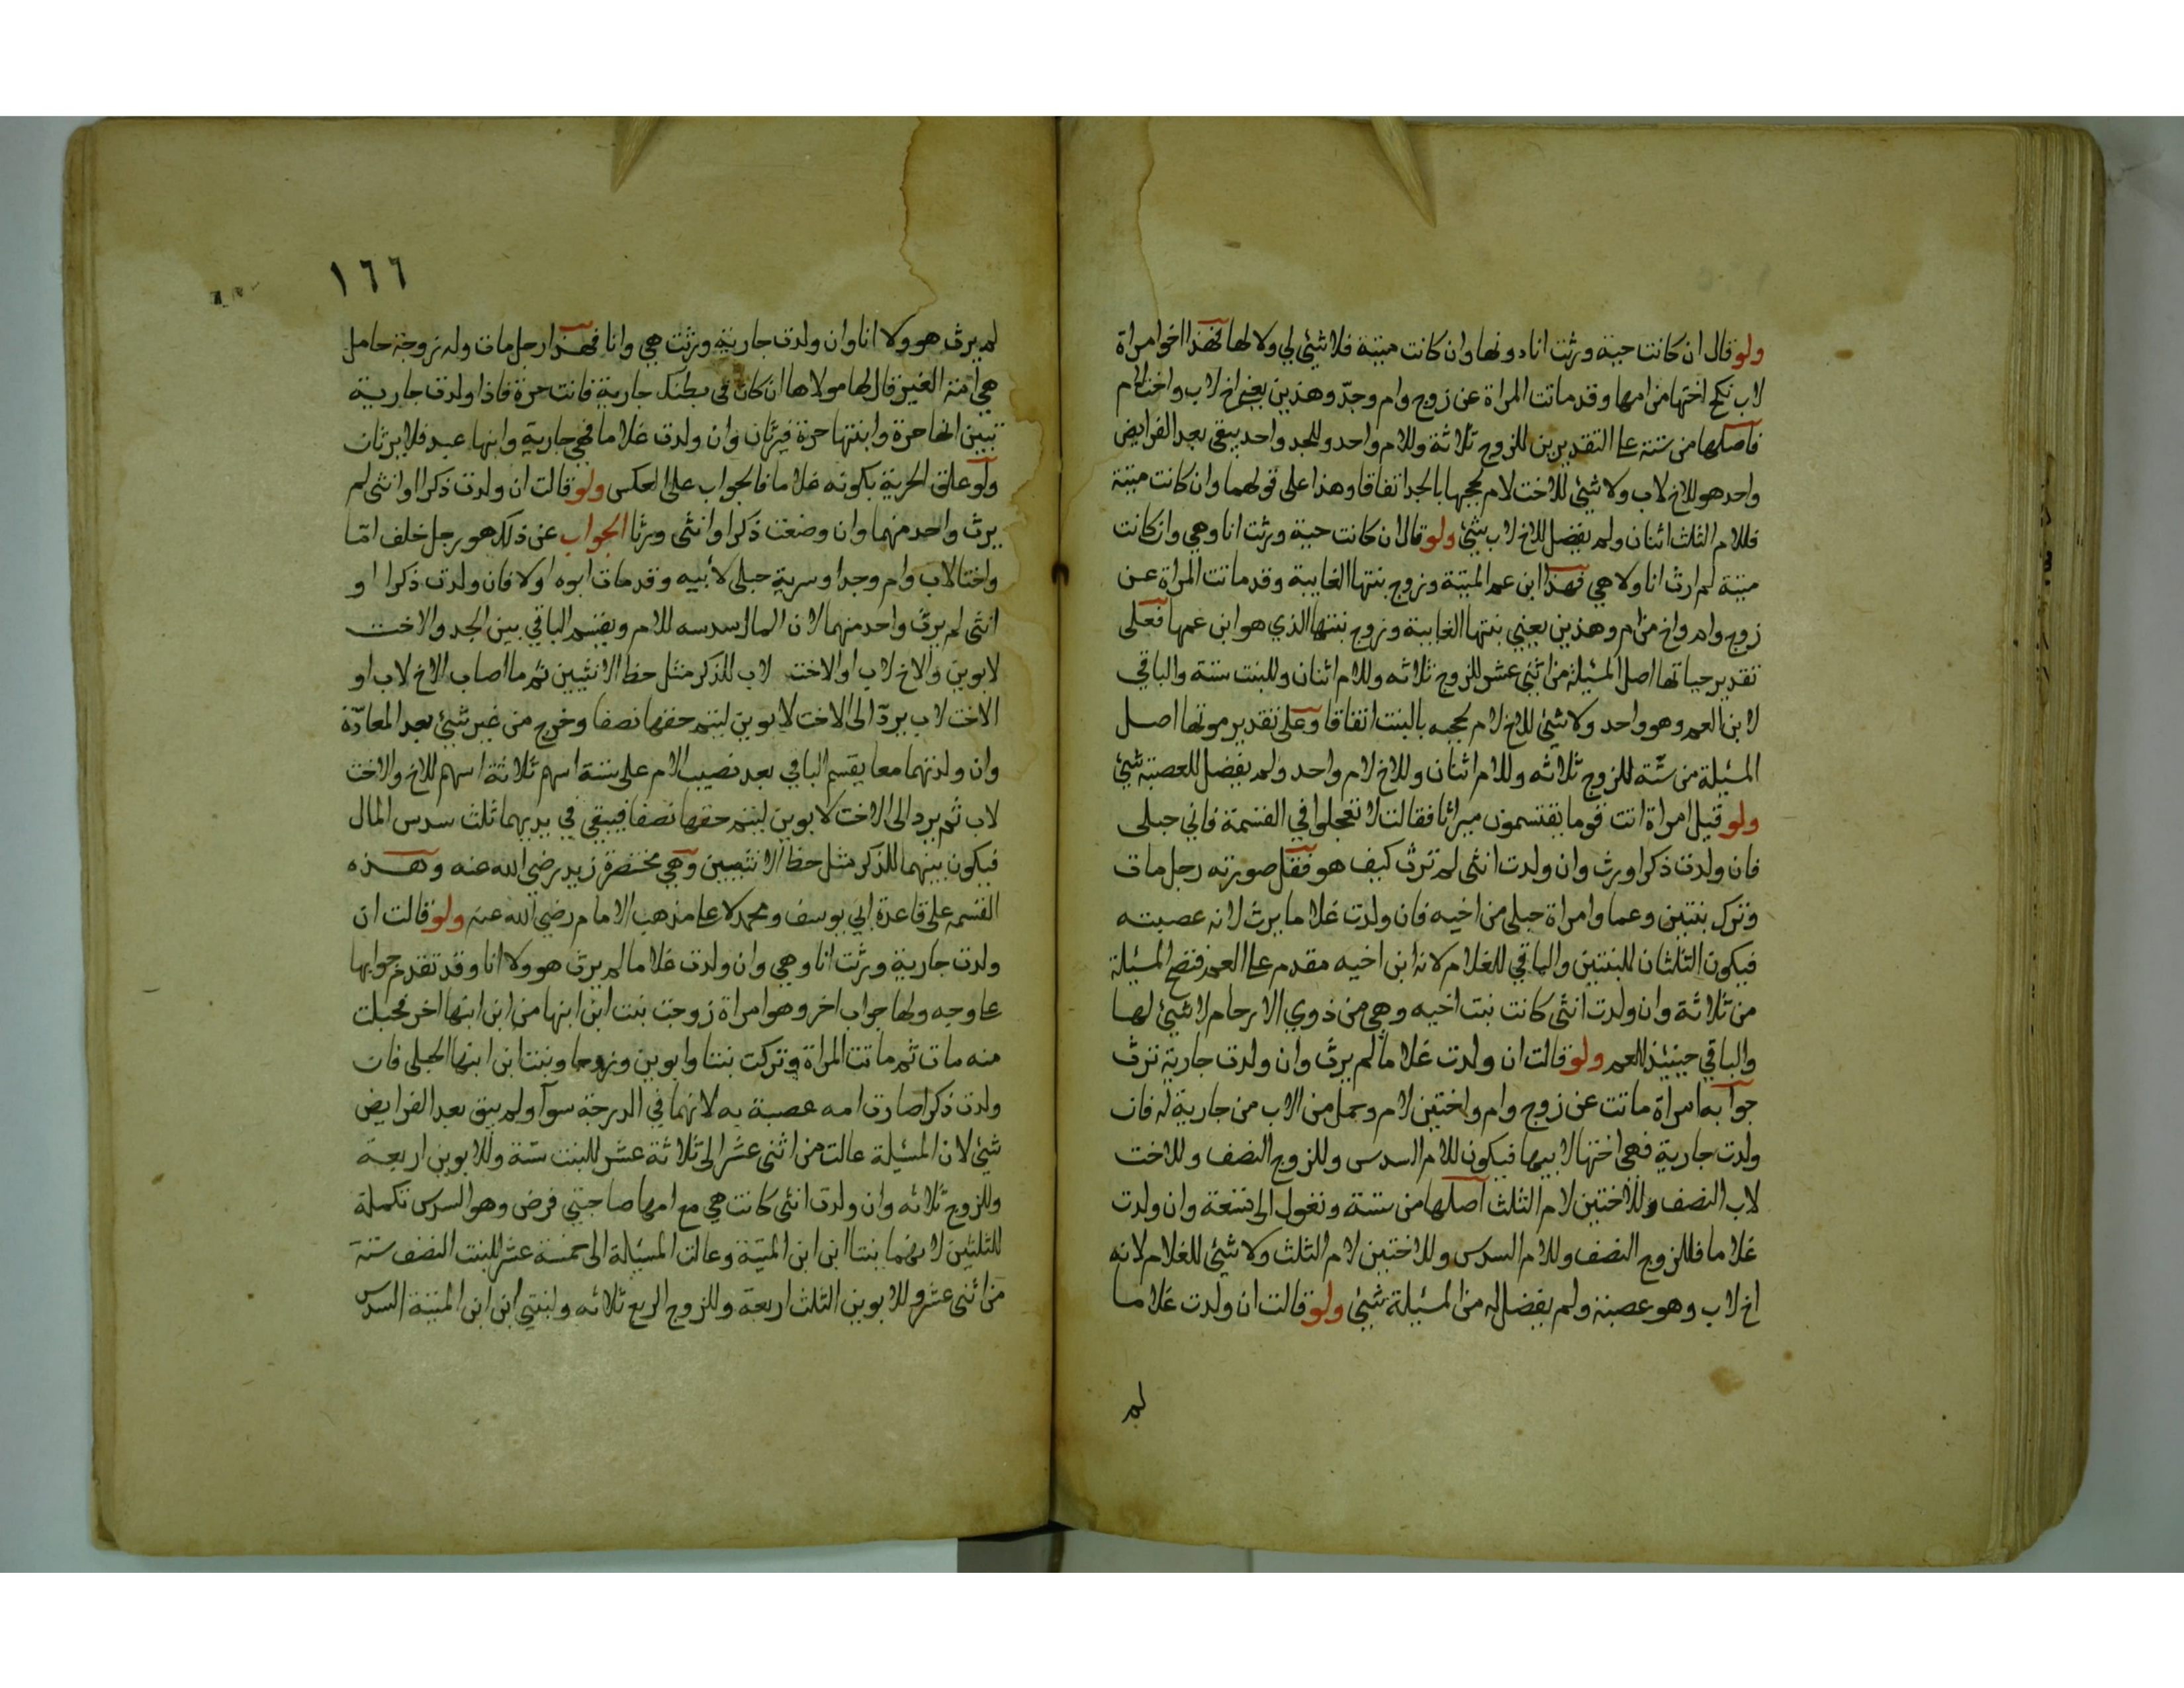 ولو قال ان كانت حية ورثت انا دونها وان كانت ميتة فلا شيئ لي ولا لها فهذا اخو امراة
لاب نكح اختها من امها وقد ماتت المراة عن زوج وام وجد وهذين يعني اخ لاب واخت لام
فاصلها من ستة على التقديرين للزوج ثلاثة وللام واحد وللجد واحد يبقى بعد الفرايض
واحد هو للاخ لاب ولا شيئ للاخت لام لحجبها بالجد اتفاقا وهذا على قولهما وان كانت ميتة
فللام الثلث اثنان ولم يفضل للاخ لاب شيئ ولو قال ان كانت حية ورثت انا وهي وان كانت
ميتة لم ارث انا ولا هي فهذا ابن عم الميتة وزوج بنتها الغايبة وقد ماتت المراة عن
زوج وام واخ من ام وهذين يعني بنتها الغايبة وزوج بنتها الذي هو ابن عمها فعلى
تقدير حياتها اصل المسئلة من اثني عشر للزوج ثلاثه وللام اثنان وللبنت ستة والباقي
لابن العم وهو واحد ولا شيئ للاخ لام لحجبه بالبنت اتفاقا وعلى تقدير موتها اصل
المسئلة من ستة للزوج ثلاثه وللام اثنان وللاخ لام واحد ولم يفضل للعصبة شيئ
ولو قيل امراة اتت قوما يقتسمون ميراثا فقالت لا تعجلوا في القسمة فاني حبلى
فان ولدت ذكرا ورث وان ولدت انثى لم ترث كيف هو فقل صورته رجل مات
وترك بنتين وعما وامراة حبلى من اخيه فان ولدت غلاما يرث لانه عصبته
فيكون الثلثان للبنتين والباقي للغلام لانه ابن اخيه مقدم على العم فتصح المسئلة
من ثلاثة وان ولدت انثى كانت بنت اخيه وهي من ذوي الارحام لا شيئ لها
والباقي حينئذ للعم ولو قالت ان ولدت غلاما لم يرث وان ولدت جارية ترث
جوابه امراة ماتت عن زوج وام واختين لام وحمل من الاب من جارية له فان
ولدت جارية فهي اختها لابيها فيكون للام السدس وللزوج النصف وللاخت
لاب النصف وللاختين لام الثلث اصلها من ستة وتعول الى تسعة وان ولدت
غلاما فللزوج النصف وللام السدس وللاختين لام الثلث ولا شيئ للغلام لانه
اخ لاب وهو عصبة ولم يفضل له من المسئلة شيئ ولو قالت ان ولدت غلاما
لم
١٦٦
لم يرث هو ولا انا وان ولدت جارية ورثت هي وانا فهذا رجل مات وله زوجة حامل
هي امة الغير قال لها مولاها ان كان في بطنك جارية فانت حرة فاذا ولدت جارية
تبين انها حرة وابنتها حرة فيرثان وان ولدت غلاما فهي جارية وابنها عبد فلا يرثان
ولو علق الحرية بكونه غلاما فالجواب على العكس ولو قالت ان ولدت ذكرا او انثى لم
يرث واحد منهما وان وضعت ذكرا وانثى ورثا الجواب عن ذلك هو رجل خلف اما
واختا لاب وام وجدا وسرية حبلى لأبيه وقد مات ابوه اولا فان ولدت ذكرا او
انثى لم يرث واحد منهما لان المال سدسه للام ويقسم الباقي بين الجد والاخت
لابوين والاخ لاب او الاخت لاب للذكر مثل حظ الانثيين ثم ما اصاب الاخ لاب او
الاخت لاب يرد الى الاخت لابوين ليتم حقها نصفا وخرج من غير شيئ بعد المعادة
وان ولدتهما معا يقسم الباقي بعد نصيب الام على ستة اسهم ثلاثة اسهم للاخ والاخت
لاب ثم يرد الى الاخت لابوين ليتم حقها نصفا فيبقى في يديهما ثلث سدس المال
فيكون بينهما للذكر مثل حظ الانثيين وهي مختصرة زيد رضي الله عنه وهذه
القسمه على قاعدة ابي يوسف ومحمد لا على مذهب الامام رضي الله عنه ولو قالت ان
ولدت جارية ورثت انا وهي وان ولدت غلاما لم يرث هو ولا انا وقد تقدم جوابها
على وجه ولها جواب اخر وهو امراة زوجت بنت ابن ابنها من ابن ابنها اخر فحبلت
منه مات ثم ماتت المراة وتركت بنتا وابوين وزوجا وبنت ابن ابنها الحبلى فان
ولدت ذكرا صارت امه عصبة به لانهما في الدرجة سوآ ولم يبق بعد الفرايض
شيئ لان المسئلة عالت من اثنى عشر الى ثلاثة عشر للبنت ستة وللابوين اربعة
وللزوج ثلاثه وان ولدت انثى كانت هي مع امها صاحبتي فرض وهو السدس تكملة
للثلثين لانهما بنتا ابن ابن الميتة وعالت المسئلة الى خمسة عشر للبنت النصف ستة
من اثنى عشر وللابوين الثلث اربعة وللزوج الربع ثلاثه ولبنتي ابن ابن الميتة السدس